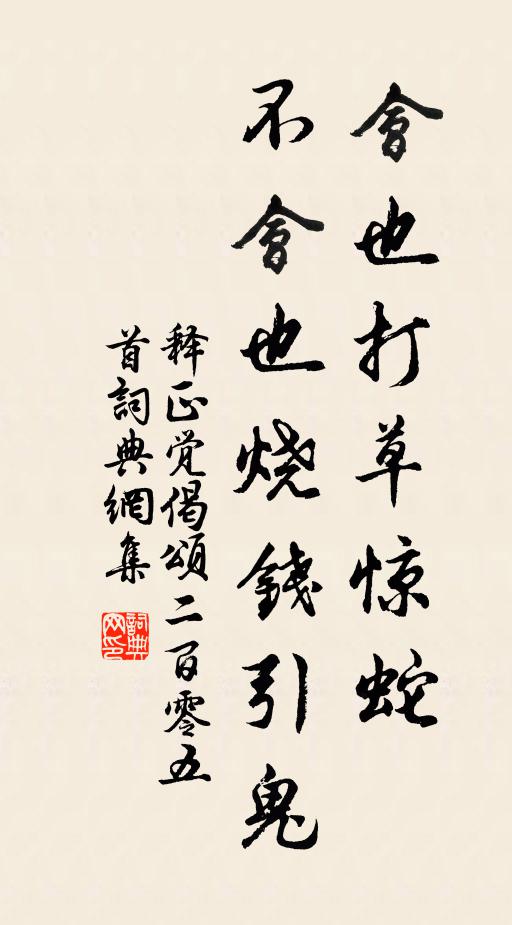 會也打草惊蛇
不會也烧錢引鬼
释正觉偈頌二百零五
首詞典網集
詞典网印